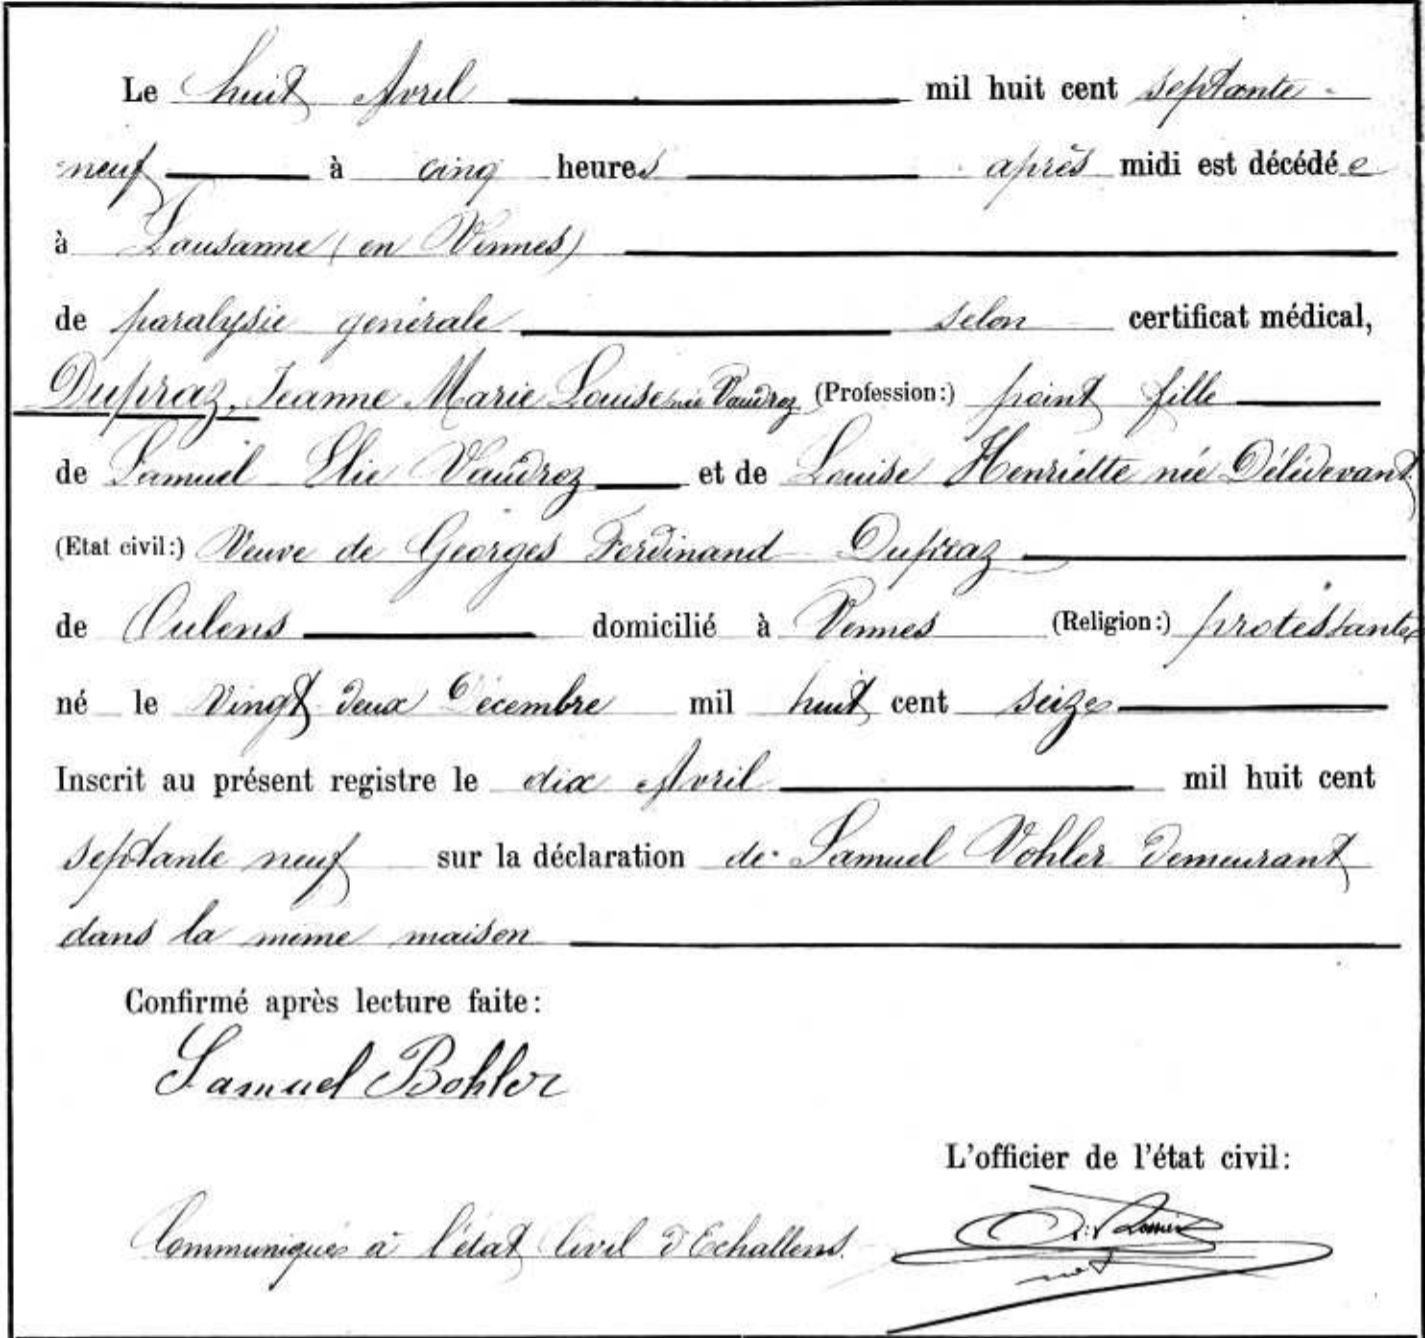 Le huit Avril mil huit cent septante-
neuf à cinq heures après midi est décédée
à Lausanne (en Vennes)
de paralysie générale selon certificat médical,
Dupraz, Jeanne Marie Louise née Vaudroz (Profession:) point fille
de Samuel Elie Vaudroz et de Louise Henriette née Délidevant
(Etat civil:) Veuve de Georges Ferdinand Dupraz
de Oulens domicilié à Vennes (Religion:) protestante
né le Vingt deux Décembre mil huit cent seize
Inscrit au présent registre le dix Avril mil huit cent
septante neuf sur la déclaration de Samuel Vohler demeurant
dans la même maison
Confirmé après lecture faite:
Samuel Bohler
L'officier de l'état civil:
Communiqué à l'état Civil d'Echallens.